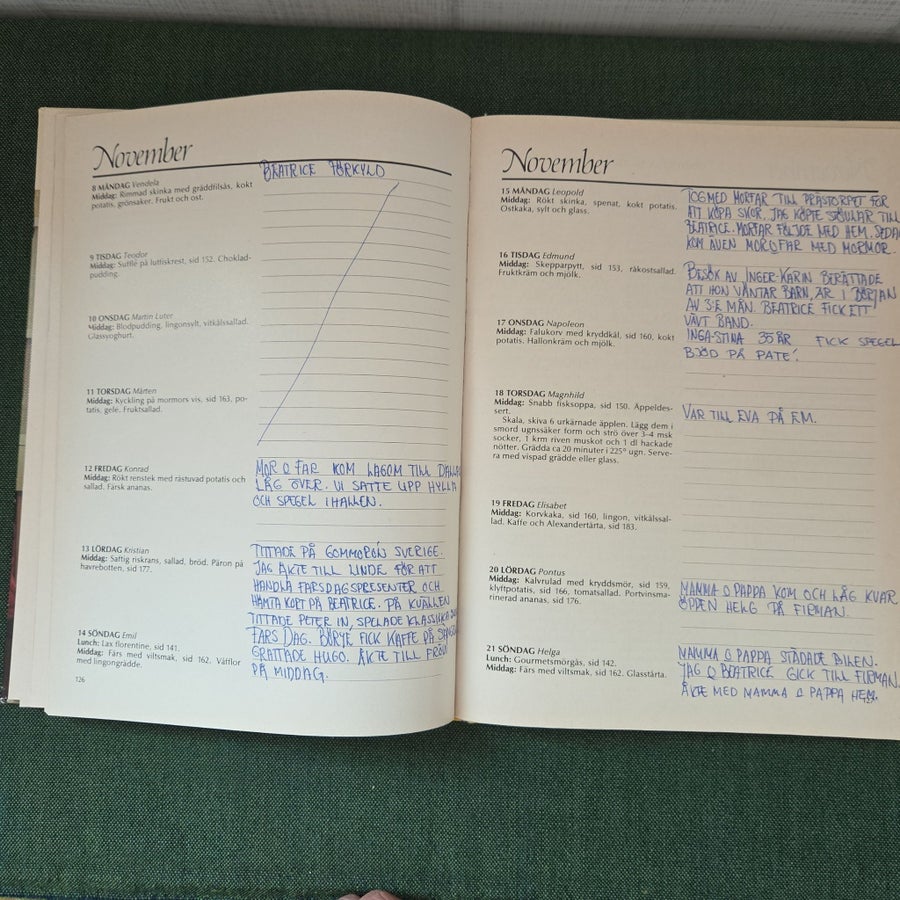 November
BEATRICE FÖRKYLD
8 MÅNDAG Vendela
Middag: Rimmad skinka med gräddfilsås, kokt
potatis, grönsaker. Frukt och ost.
9 TISDAG Teodor
Middag: Sufflé på lutfiskrest, sid 152. Choklad-
pudding.
10 ONSDAG Martin Luter
Middag: Blodpudding, lingonsylt, vitkålssallad.
Glassyoghurt.
11 TORSDAG Mårten
Middag: Kyckling på mormors vis, sid 163, po-
tatis, gele. Fruktsallad.
12 FREDAG Konrad
Middag: Rökt renstek med rästuvad potatis och
sallad. Färsk ananas.
MOR O FAR KOM LAGOM TILL
LÅG ÖVER. VI SATTE UPP HYLLA
OCH SPEGEL I HALLEN.
13 LÖRDAG Kristian
Middag: Saftig riskrans, sallad, bröd. Päron på
havrebotten, sid 177.
TITTADE PÅ GOMMORON SVERIGE.
JAG ÅKTE TILL LINDE FÖR ATT
HANDLA FARSDAGSPRESENTER OCH
HÄMTA KORT PÅ BEATRICE. PÅ KVÄLLEN
TITTADE PETER IN, SPELADE
14 SÖNDAG Emil
Lunch: Lax florentine, sid 141.
Middag: Färs med viltsmak, sid 162. Våfflor
med lingongrädde.
FARS DAG. BÖRJE FICK KAFFE PÅ
GRATTADE HUGO. ÅKTE TILL
PÅ MIDDAG.
126
November
15 MÅNDAG Leopold
Middag: Rökt skinka, spenat, kokt potatis.
Ostkaka, sylt och glass.
TOG MED MORFAR TILL PRÄSTORPET FÖR
ATT KÖPA SKOR. JAG KÖPTE STÖVLAR TILL
BEATRICE. MORFAR FÖLJDE MED HEM. SEDAN
KOM ÄVEN MOR O FAR MED MORMOR.
16 TISDAG Edmund
Middag: Skepparpytt, sid 153, råkostsallad.
Fruktkräm och mjölk.
BESÖK AV INGER-KARIN BERÄTTADE
ATT HON VÄNTAR BARN, ÄR I BÖRJAN
AV 3:E MÅN. BEATRICE FICK ETT
VÄVT BAND.
17 ONSDAG Napoleon
Middag: Falukorv med kryddkål, sid 160, kokt
potatis. Hallonkräm och mjölk.
INGA-STINA 35 ÅR FICK SPEGEL
BJÖD PÅ PATÉ!
18 TORSDAG Magnhild
Middag: Snabb fisksoppa, sid 150. Äppeldes-
sert.
Skala, skiva 6 urkärnade äpplen. Lägg dem i
smord ugnssäker form och strö över 3–4 msk
socker, 1 krm riven muskot och 1 dl hackade
nötter. Grädda ca 20 minuter i 225° ugn. Serve-
ra med vispad grädde eller glass.
VAR TILL EVA PÅ E.M.
19 FREDAG Elisabet
Middag: Korvkaka, sid 160, lingon, vitkålssal-
lad. Kaffe och Alexandertårta, sid 183.
20 LÖRDAG Pontus
Middag: Kalvrulad med kryddsmör, sid 159,
klyftpotatis, sid 166, tomatsallad. Portvinsma-
rinerad ananas, sid 176.
MAMMA O PAPPA KOM OCH LÅG KVAR
ÖPPEN HELG PÅ FIRMAN.
21 SÖNDAG Helga
Lunch: Gourmetsmörgås, sid 142.
Middag: Färs med viltsmak, sid 162. Glasstårta.
MAMMA O PAPPA STÄDADE BILEN.
JAG O BEATRICE GICK TILL FIRMAN.
ÅKTE MED MAMMA O PAPPA HEM.